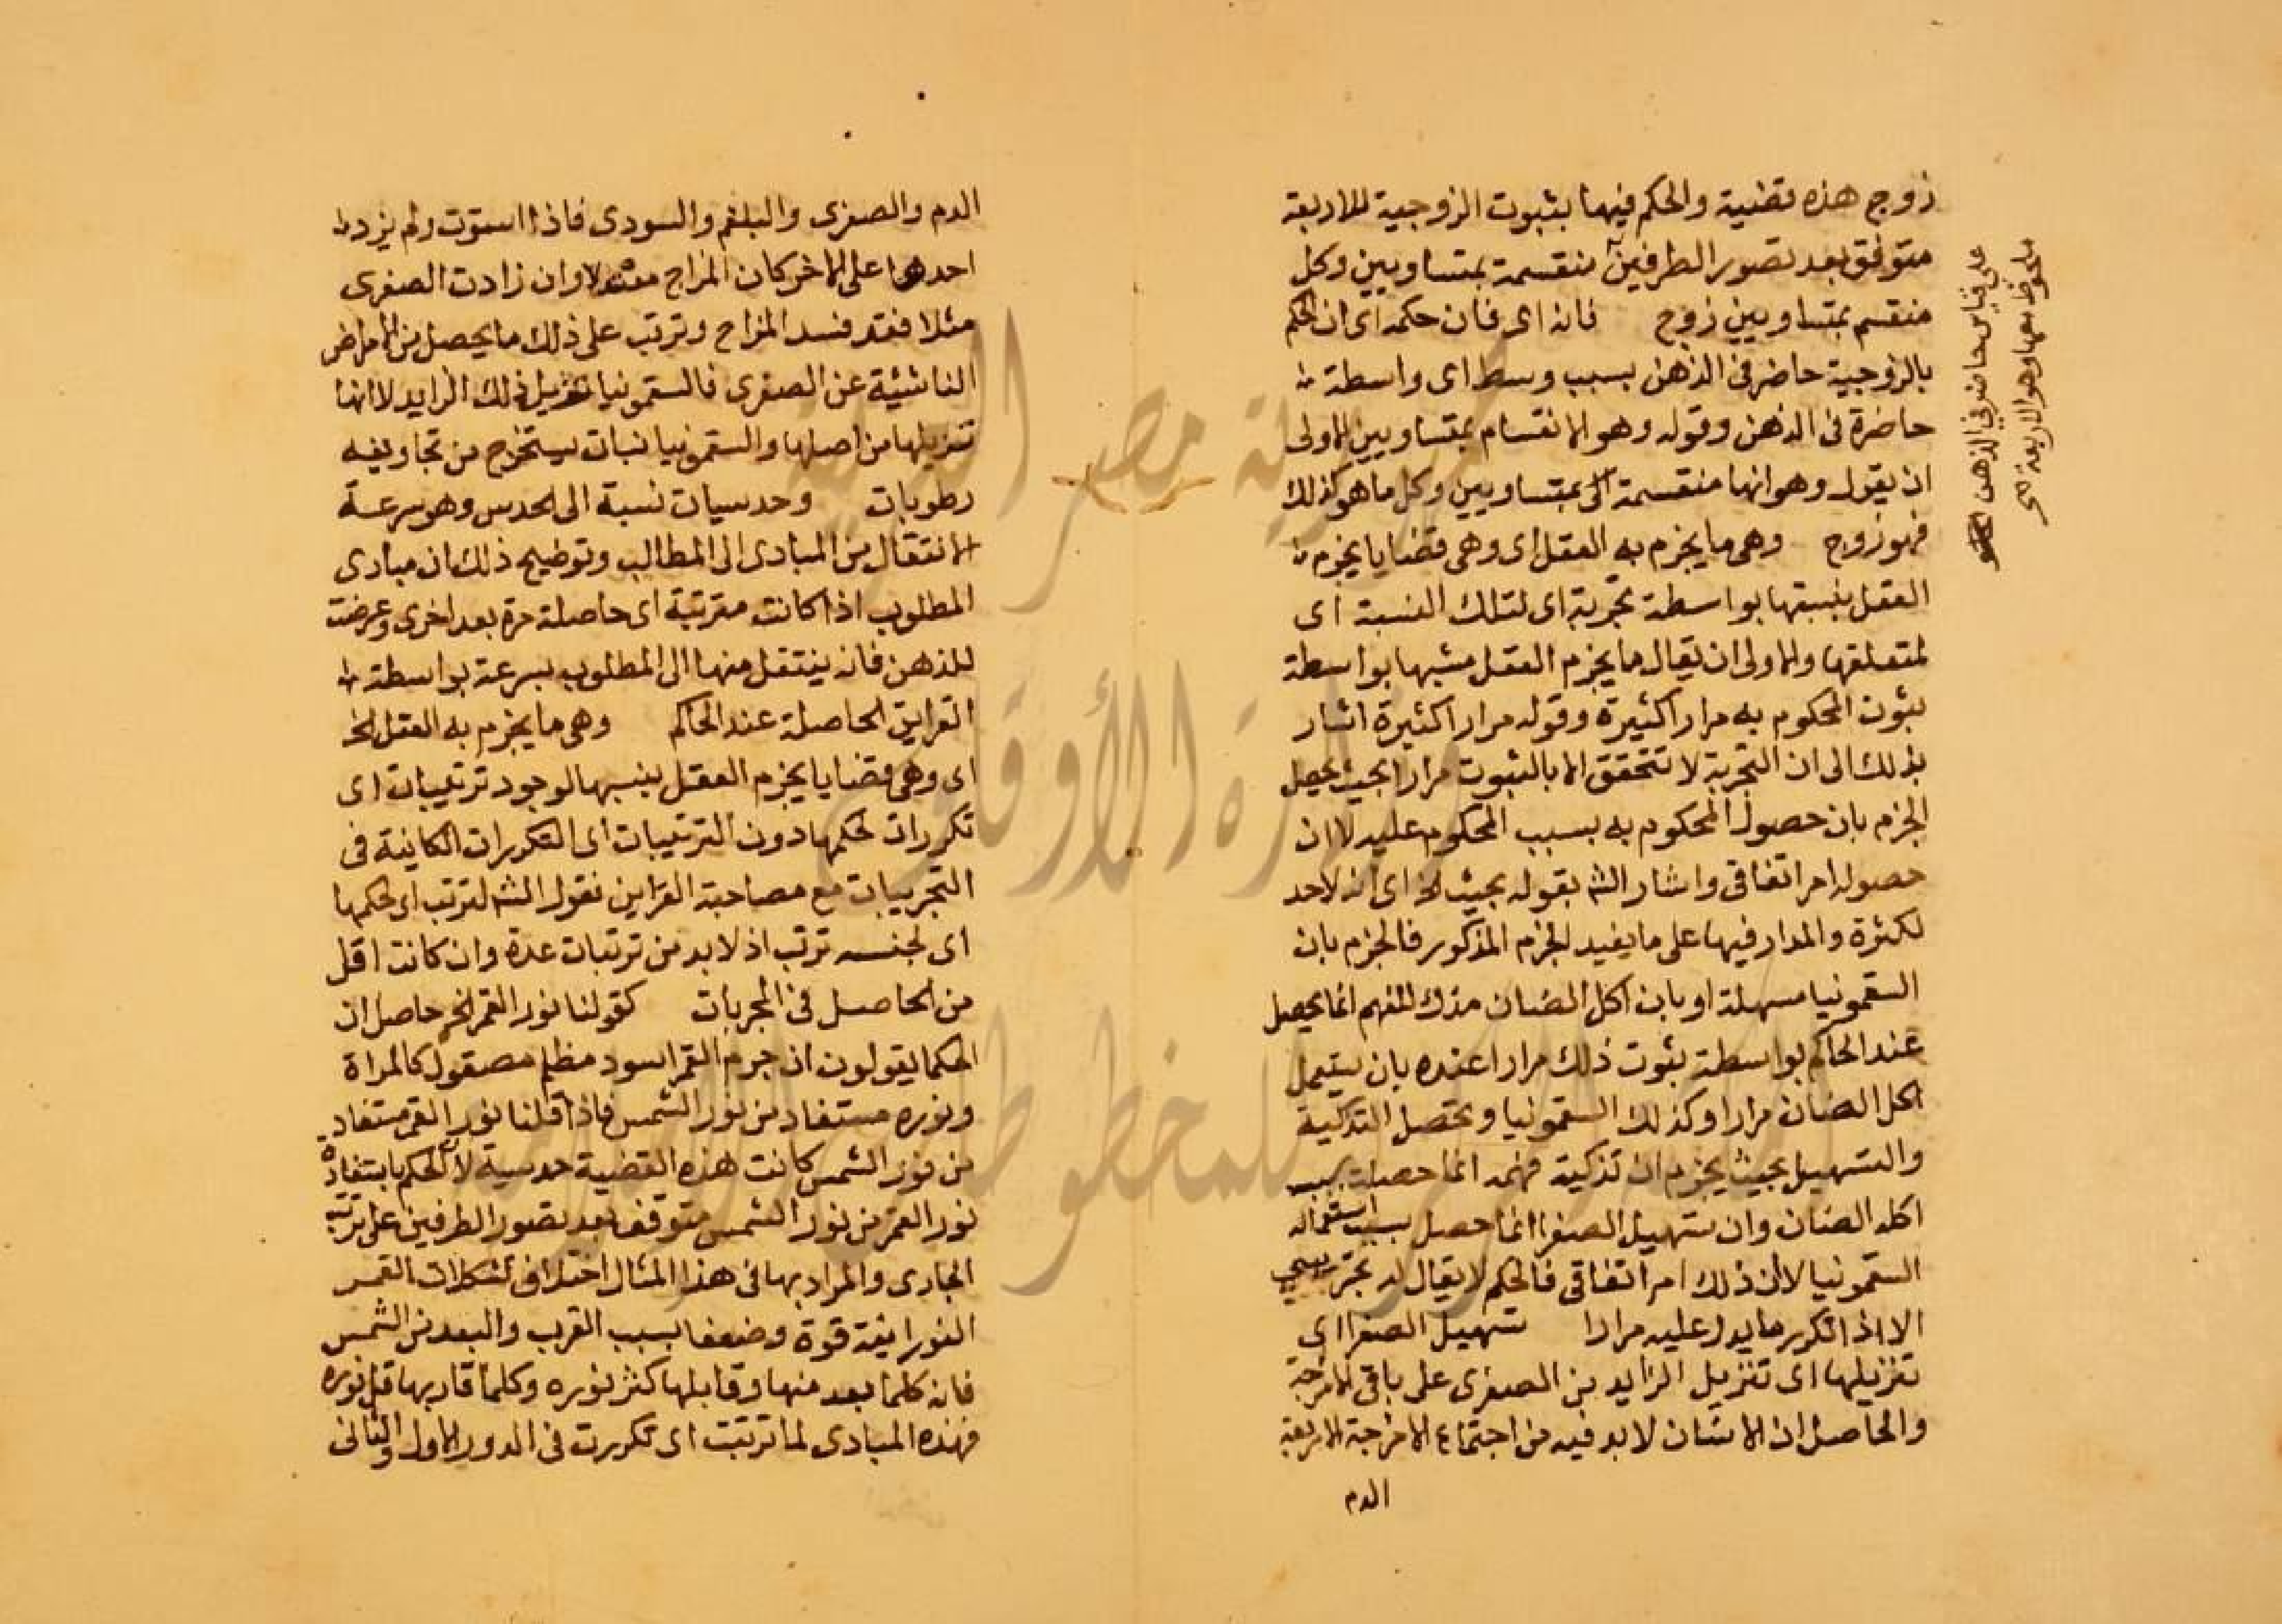 زوج هذه قضية والحكم فيها بثبوت الزوجية للاربعة
متوقف بعد تصور الطرفين منقسمة بمتساويين وكل
منقسم بمتساويين زوج فانه اى فان حكمه اى ان الحكم
بالزوجية حاضر فى الذهن بسبب وسط اى واسطة
حاضرة فى الذهن وقوله وهو الانقسام بمتساويين الاولى
ان يقول وهو انها منقسمة الى بمتساويين وكل ما هو كذلك
فهو زوج وهى ما يجزم به العقل اى وهى قضايا يجزم
العقل بنسبتها بواسطة تجربة اى لتلك النسبة اى
لمتعلقها والاولى ان يقال ما يجزم العقل بواسطة
بثوت المحكوم به مرارا كثيرة وقوله مرارا كثيرة اشار
بذلك الى ان التجربة لا تتحقق الا بالثبوت مرارا بحيث يحصل
الجزم بان حصول المحكوم به بسبب المحكوم عليه لا ان
حصوله امر اتفاقى واشار الش بقوله بحيث الخ اى انه لا حد
لكثرة والمدار فيها على ما يفيد الجزم المذكور فالجزم بان
السقمونيا مسهلة او بان اكل الضان مذك للفهم انما يحصل
عند الحاكم بواسطة بثوت ذلك مرارا عنده بان يستعمل
اكل الضان مرارا وكذلك السقمونيا وتحصل التذكية
والتسهيل بحيث يجزم ان تذكية فهمه انما حصلت بسبب
اكله الضان وان تسهيل الصفرا انما حصل بسبب استعماله
السقمونيا لا ان ذلك امر اتفاقى فالحكم لا يقال له
الا اذا تكرر ما يدل عليه مرارا تسهيل الصفرا اى
تنزيلها اى تنزيل الزايد من الصفرى على باقى الامزجة
والحاصل ان الانسان لا بد فيه من اجتماع الامزجة الاربعة
الدم
على قياس حاضر فى الذهن
ملحوظ معها وهو الاربعة صح
الدم والصفرى والبلغم والسودى فاذا استوت ولم يزد
احدها على الاخر كان المزاج معتدلا وان زادت الصفرى
مثلا فقد فسد المزاج وترتب على ذلك ما يحصل من الامراض
الناشئة عن الصفرى فالسقمونيا تنزيل ذلك الزايد لا انها
تنزيلها من اصلها والسقمونيا نبات يستخرج من تجاويفه
رطوبات وحدسيات نسبة الى الحدس وهو سرعة
الانتقال من المبادى الى المطالب وتوضيح ذلك ان مبادى
المطلوب اذا كانت مترتبة اى حاصلة مرة بعد اخرى وعرضت
للذهن فانه ينتقل منها الى المطلوب بسرعة بواسطة
القراين الحاصلة عند الحاكم وهى ما يجزم به العقل الخ
اى وهى قضايا يجزم العقل بنسبها لوجود ترتيبات اى
تكررات لحكمها دون الترتيبات اى التكررات الكاينة فى
التجربيات مع مصاحبة القراين فقول الش لترتب اى حكمها
اى لجنس ترتب اذ لا بد من ترتبات عدة وان كانت اقل
من الحاصل فى المجربات كقولنا نور القمر الخ حاصل ان
الحكما يقولون ان جرم القمر اسود مظلم مصقول كالمراة
ونوره مستفاد من نور الشمس فاذا قلنا نور القمر مستفاد
من نور الشمس كانت هذه القضية حدسية لان الحكم باستفادة
نور القمر من نور الشمس متوقف بعد تصور الطرفين على ترتب
المبادى والمراد بها فى هذا المثال اختلاف تشكلات القمر
النورانية قوة وضعفا بسبب القرب والبعد من الشمس
فانه كلما بعد منها وقابلها كثر نوره وكلما قاربها قل نوره
فهذه المبادى لما ترتبت اى تكررت فى الدور الاول والثانى